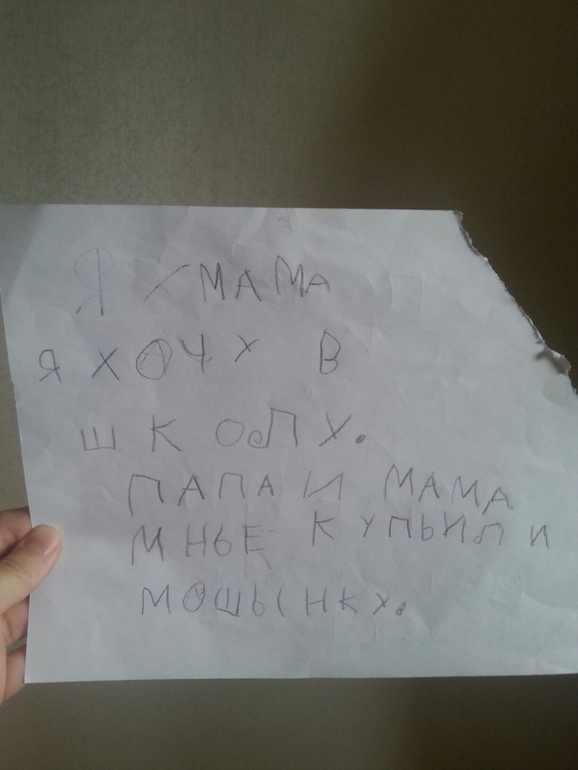 Я МАМА
Я ХОЧУ В
ШКОЛУ.
ПАПА И МАМА
МНЬЕ КУПЬИЛИ
МОШЫНКУ.